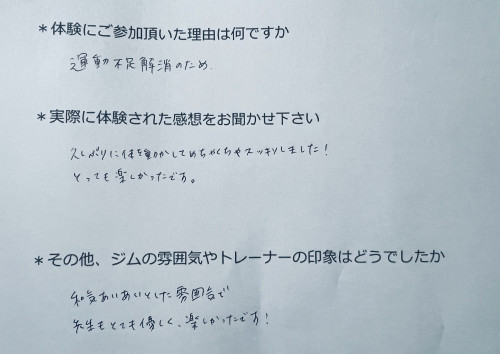 ＊体験にご参加頂いた理由は何ですか
運動不足解消のため.
＊実際に体験された感想をお聞かせ下さい
久しぶりに体を動かしてめちゃくちゃスッキリしました！
とっても楽しかったです。
＊その他、ジムの雰囲気やトレーナーの印象はどうでしたか
和気あいあいとした雰囲気で
先生もとても優しく、楽しかったです！